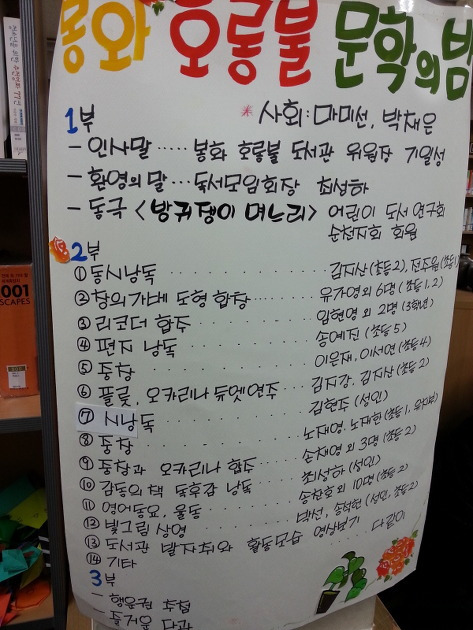 봉화 호롱불 문학의 밤
※ 사회: 마미선, 박채은
1부
- 인사말 ····· 봉화 호롱불 도서관 위원장 기일성
- 환영의 말 ··· 독서모임회장 최성하
- 동극 <방귀쟁이 며느리> 어린이 도서 연구회
순천지회 회원
2부
① 동시낭독 김지상 (초등2), 전주원 (초등1)
② 창의가베 도형 합창 유가영 외 6명 (초등1,2)
③ 리코더 합주 임현영 외 2명 (3학년)
④ 편지 낭독 송예진 (초등5)
⑤ 중창 이은재, 이서연 (초등4)
⑥ 플룻, 오카리나 듀엣 연주 김지강, 김지상 (초등2)
⑦ 시낭독 김현주 (성인)
⑧ 중창 노재영, 노재현 (초등1, 유치부)
⑨ 중창과 오카리나 합주 손채영 외 3명 (초등2)
⑩ 감동의 책 독후감 낭독 최성하 (성인)
⑪ 영어동요, 율동 송찬호 외 10명 (초등2)
⑫ 빛그림 상영 박선, 송석현 (성인, 초등2)
⑬ 도서관 발자취와 활동모습 영상보기 ···· 다같이
⑭ 기타
3부
- 행운권 추첨
- 즐거운 다과
001
SCAPES